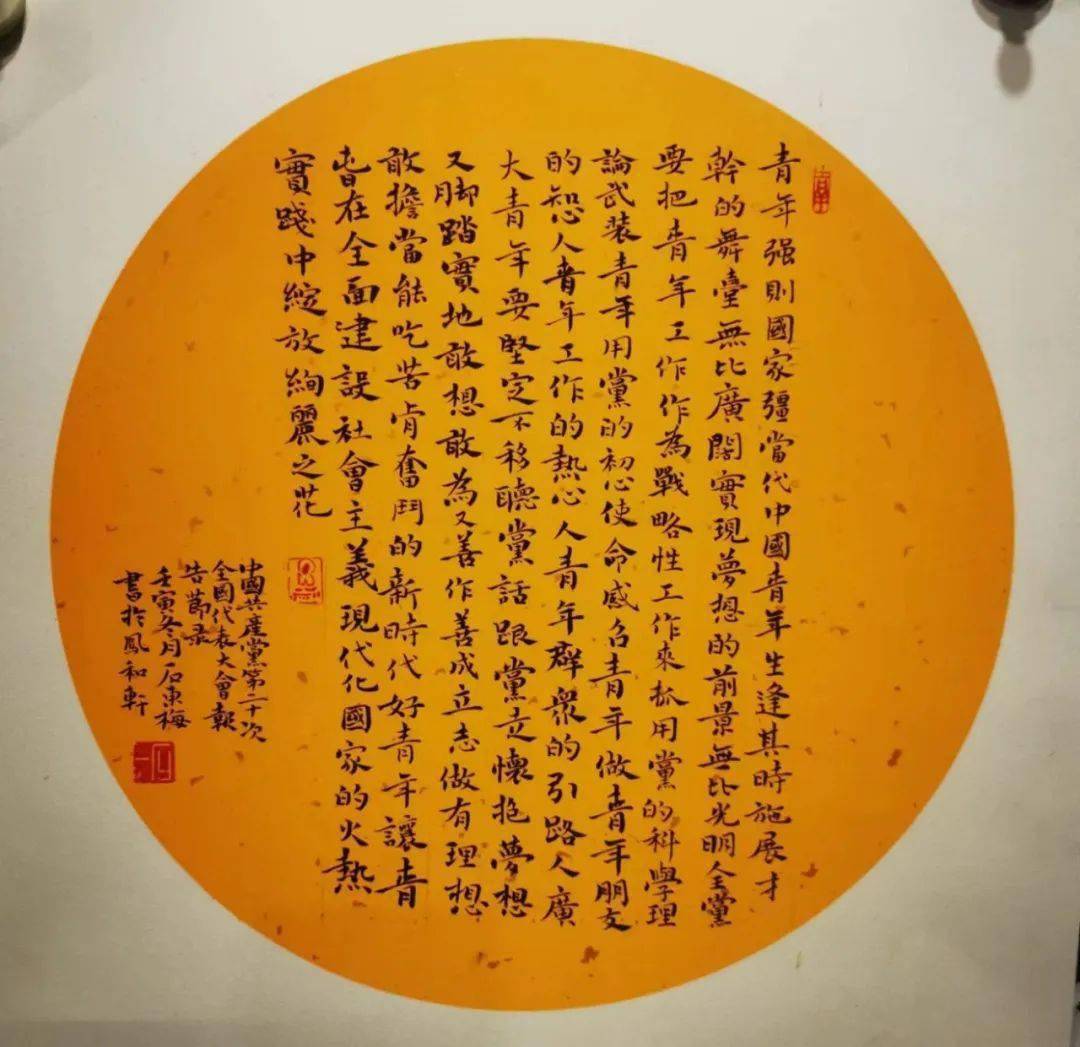 青年强則國家疆當代中國青年生逢其時施展才
幹的舞臺無比廣闊實現夢想的前景無比光明全黨
要把青年工作作為戰略性工作來抓用黨的科學理
論武装青年用黨的初心使命感召青年做青年朋友
的知心人青年工作的熱心人青年群衆的引路人廣
大青年要堅定不移聽黨話跟黨走懷抱夢想
又脚踏實地敢想敢為又善作善成立志做有理想
敢擔當能吃苦肯奮鬥的新時代好青年讓青
春在全面建設社會主義現代化國家的火熱
實踐中綻放絢麗之花
中國共產黨第二十次
全國代表大會報
告節录
壬寅冬月石東梅
書於鳳和軒